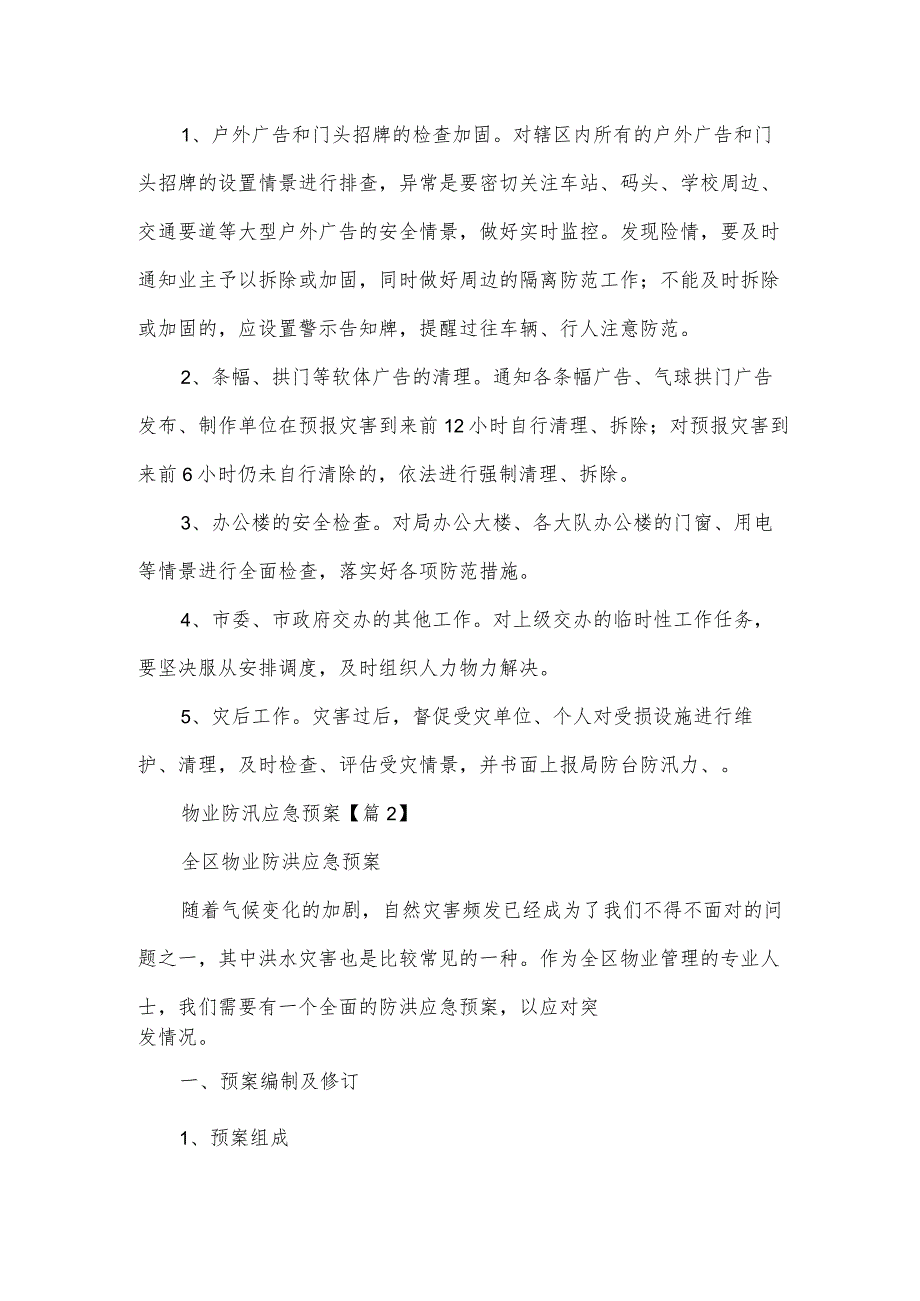 1、户外广告和门头招牌的检查加固。对辖区内所有的户外广告和门
头招牌的设置情景进行排查，异常是要密切关注车站、码头、学校周边、
交通要道等大型户外广告的安全情景，做好实时监控。发现险情，要及时
通知业主予以拆除或加固，同时做好周边的隔离防范工作；不能及时拆除
或加固的，应设置警示告知牌，提醒过往车辆、行人注意防范。
2、条幅、拱门等软体广告的清理。通知各条幅广告、气球拱门广告
发布、制作单位在预报灾害到来前12小时自行清理、拆除；对预报灾害到
来前6小时仍未自行清除的，依法进行强制清理、拆除。
3、办公楼的安全检查。对局办公大楼、各大队办公楼的门窗、用电
等情景进行全面检查，落实好各项防范措施。
4、市委、市政府交办的其他工作。对上级交办的临时性工作任务，
要坚决服从安排调度，及时组织人力物力解决。
5、灾后工作。灾害过后，督促受灾单位、个人对受损设施进行维
护、清理，及时检查、评估受灾情景，并书面上报局防台防汛力、。
物业防汛应急预案【篇2】
全区物业防洪应急预案
随着气候变化的加剧，自然灾害频发已经成为了我们不得不面对的问
题之一，其中洪水灾害也是比较常见的一种。作为全区物业管理的专业人
士，我们需要有一个全面的防洪应急预案，以应对突
发情况。
一、预案编制及修订
1、预案组成